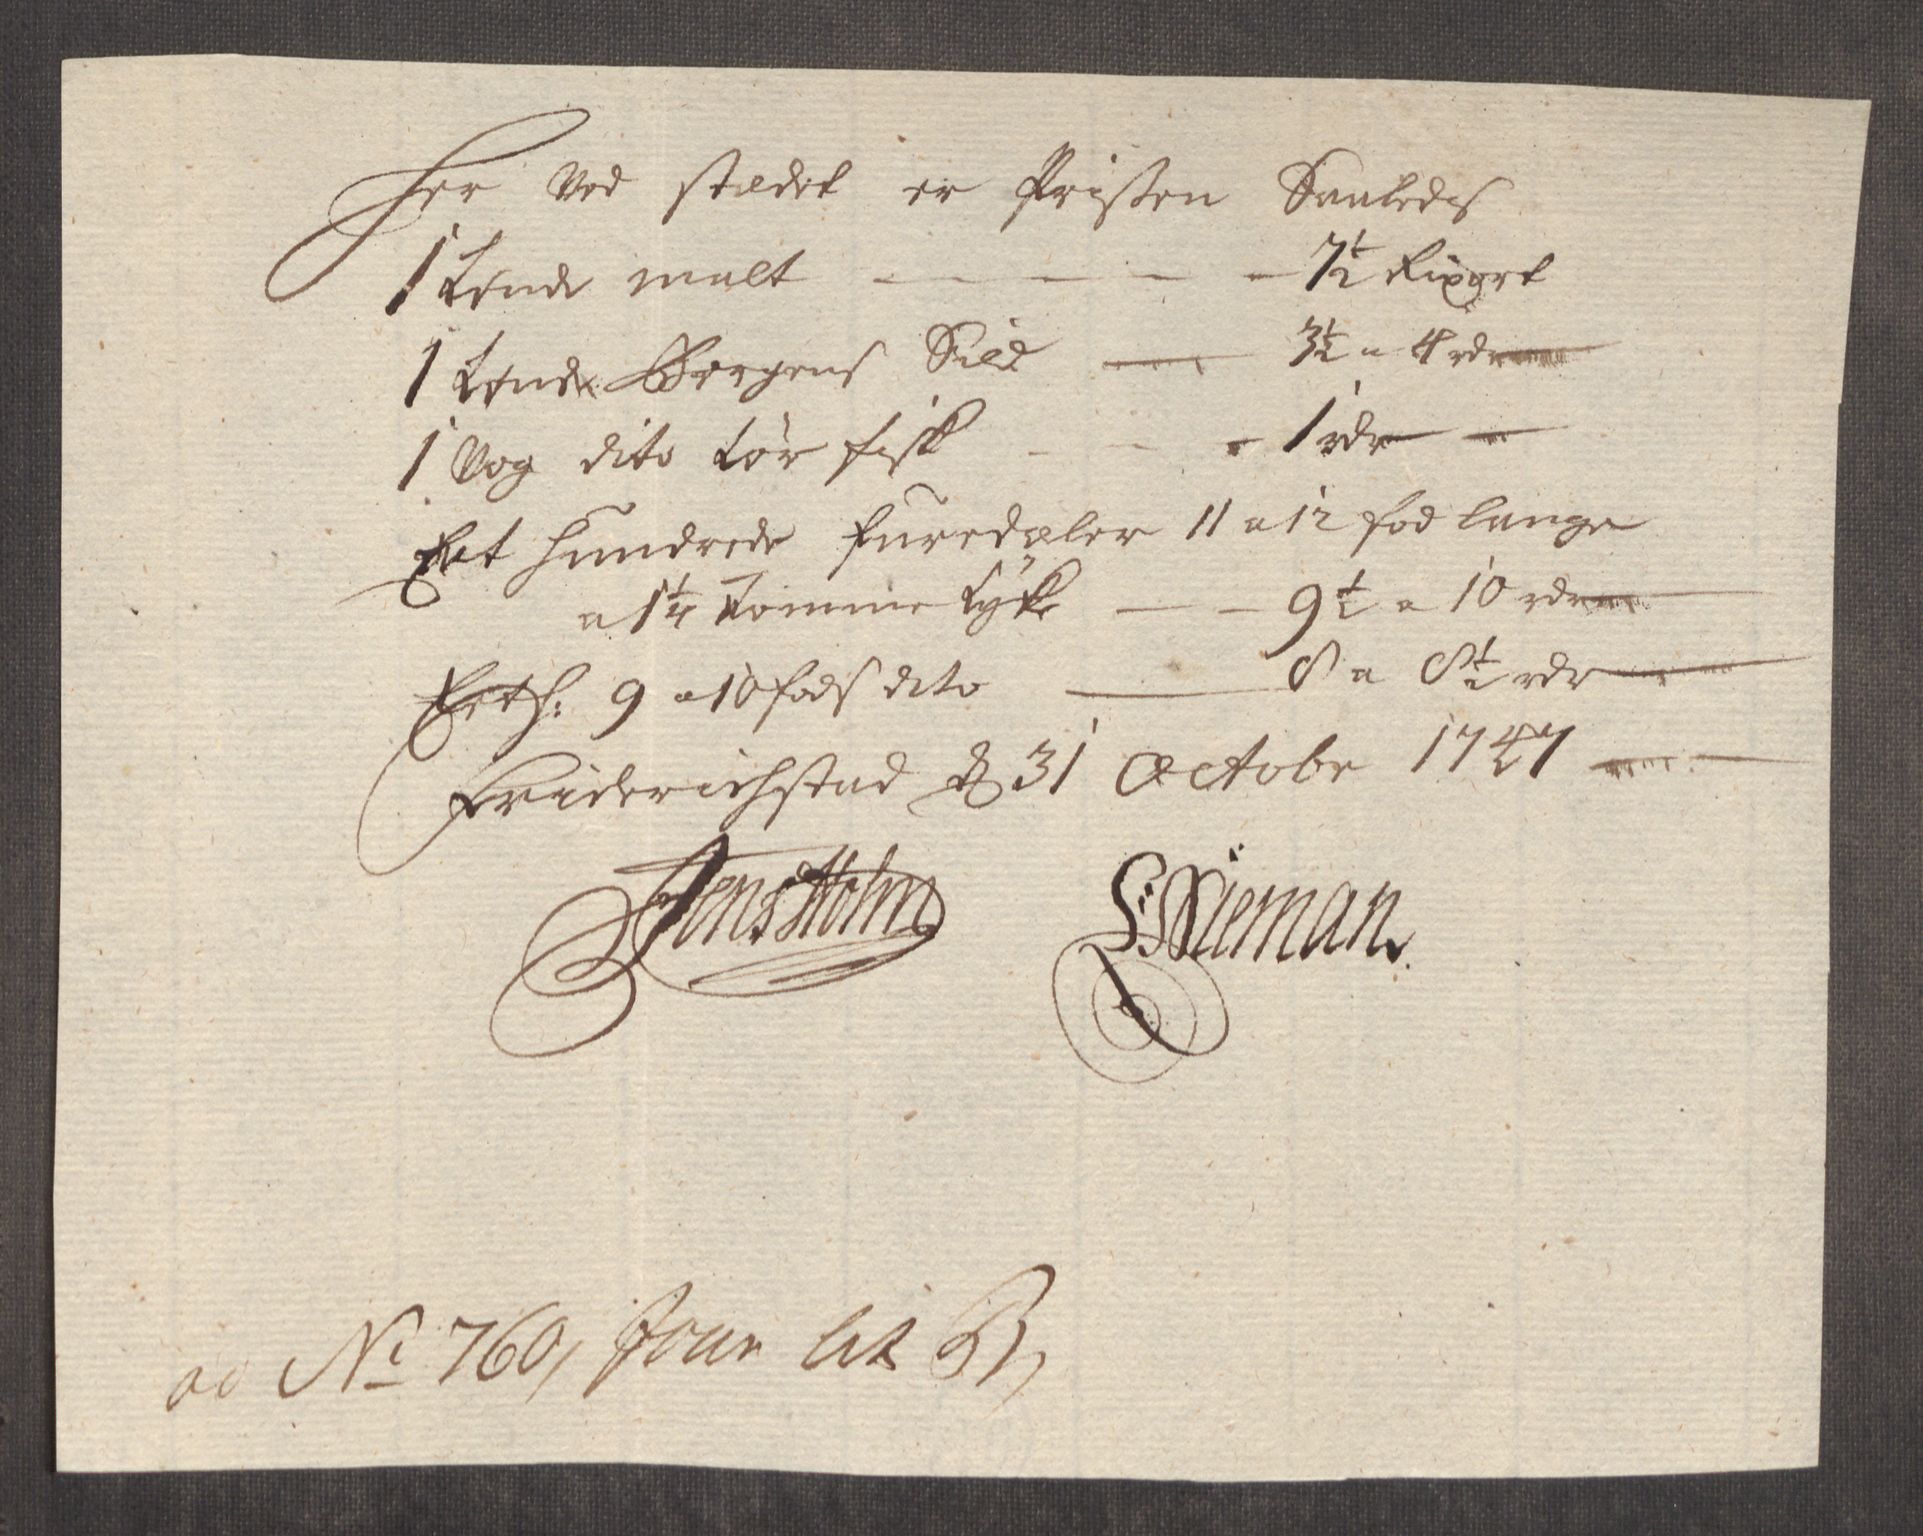 Her Ved stædet er Prisen Saaledes
1 tønde malt 7½ Rixort
1 tønde Bergens Sild 3½ a 4 rdr
1 Vog dito tør fisk 1 rdr
Eet hundrede furedæler 11 a 12 fod lange
a 1¼ tomme tyke 9½ a 10 rdr
9 a 10 fods dito 8 a 8½ rdr
Friderichstad d 31 Octobr 1747
Jens Holm S: Nieman
ad No 760, Jour lit B,